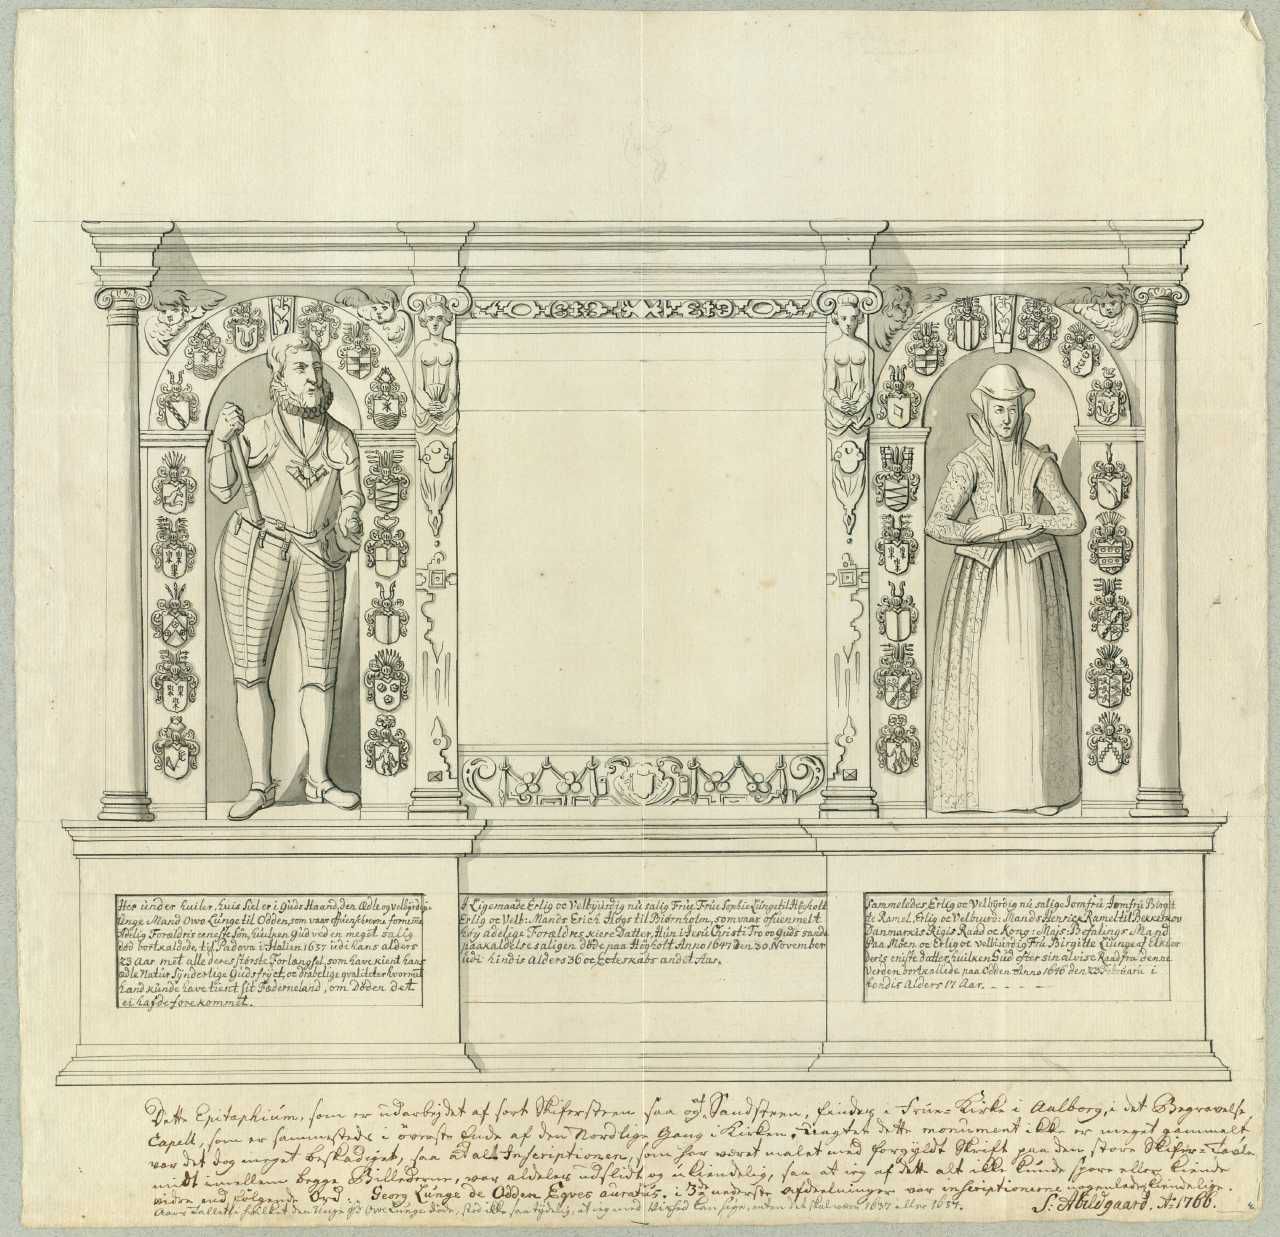 Her ünder huiler, huis Siel er i Güds Haand, den Ædle og velbyrdige
ünge Mand Owe Lünge til Odden, som vaar ofuenschrevne fornemme
Adelig Forældris eeneste Søn, huilken Gud ved en meget salig
død bortkaldede til Padova i Italien 1637 üdi hans alders
23 Aar met alle deres störste Forlangsel, som have kient hans
ædle Natür, Synderlige Güdsfryct, oc drabelige qvaliteter hvormet
hand künde have tient sit Fæderneland, om Döden det
ei hafde forekommet.
I Ligemaade Erlig oc Velbyürdig nü salig Früe, Früe Sophie Lünge til Høholt
Erlig oc Velb: Mands Erich Høgs til Biørnholm, som vaar ofuenmelt
høy adelige Forældres kiere Datter, Hün i Jesü Christi Tro og Güds sande
paakaldelse saligen döde paa Høholt Anno 1647 den 30 November
üdi hindis Alders 36 oc Ecteskabs andet Aar.
Sammeledes Erlig oc Velbyrdig nü salige Jomfrü Jomfrü Birgit-
te Ramel, Erlig oc Velbyurd: Mands Henrick Ramel til Bekkeskov
Danmarxis Rigis Raad oc Kong: Majs: Befalings Mand
Paa Möen oc Erlig oc velbiürdig Frü Birgitte Liünge af Elkier
deris eniste datter, huilken Güd efter sin alvise Raad fra denne
Verden bortkallede paa Odden Anno 1646 den 23 Febrüarii i
hendis Alders 17 Aar.
Dette Epitaphium, som er üdarbejdet af sort Skifersteen saa og af Sandsteen, findes i Früe-Kirke i Aalborg, i det Begravelse
Capell, som er sammesteds i överste Ende af den Nordlige Gang i Kirken. Uagtet dette monument ikke er meget gammelt
var det dog meget beskadiget, saa at alt Inscriptionen, som har været malet med forgyldt Skrift paa den store Skifer-Tavle
midt imellem begge Billederne, var aldeles üdslidt og ükiendelig, saa at jeg af dette alt ikke künde spore eller kiende
videre end følgende Ord: Georg Lünge de Odden Eqves auratus. i 3de nederste afdeelninger var inscriptionerne nogenledes kiendelige.
Aars Tallet i hvilket den Unge Hr. Owe Lunge döde, stod ikke saa tydelig, at jeg med Vished kan sige, enten det skal være 1637 eller 1634.
S: Abildgaard. Ao 1766.